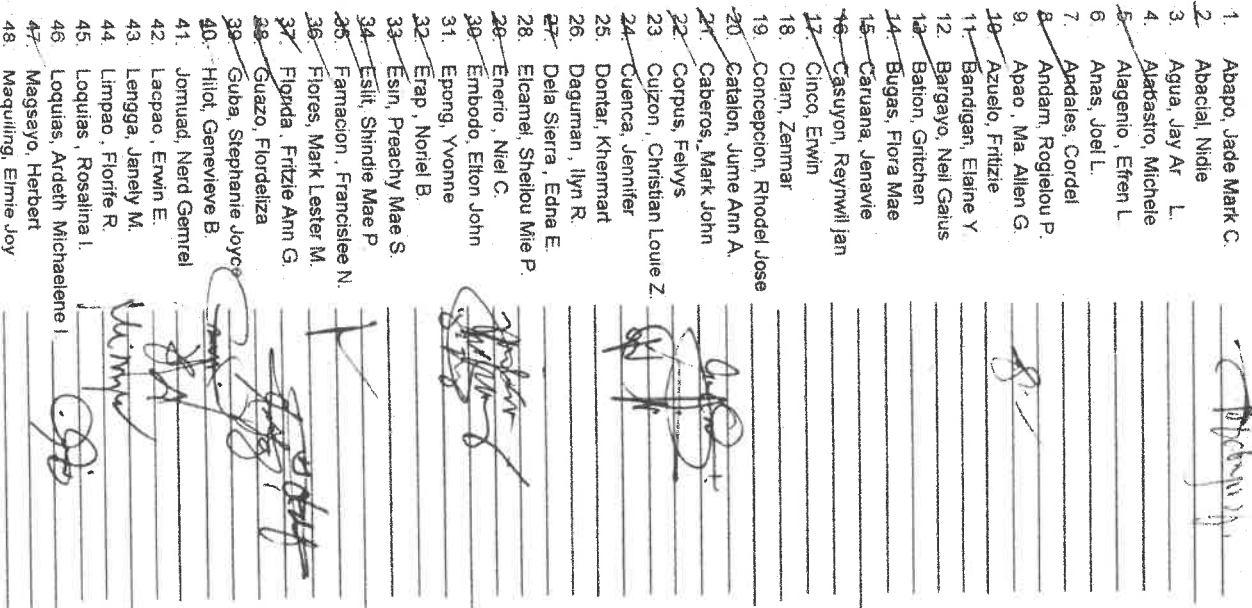 1. Abapo, Jade Mark C.
2. Abacial, Nidie
3. Agua, Jay Ar L.
4. Alabastro, Michele
5. Alagenio , Efren L.
6. Anas, Joel L.
7. Andales, Cordel
8. Andam, Rogielou P.
9. Apao , Ma. Allen G.
10. Azuelo, Fritzie
11. Bandigan, Elaine Y.
12. Bargayo, Neil Gaius
13. Bation, Gritchen
14. Bugas, Flora Mae
15. Caruana, Jenavie
16. Casuyon, Reynwil jan
17. Cinco, Erwin
18. Clam, Zenmar
19. Concepcion, Rhodel Jose
20. Catalon, Jume Ann A.
21. Caberos, Mark John
22. Corpus, Felvys
23. Cuizon , Christian Louie Z.
24. Cuenca, Jennifer
25. Dontar, Khenmart
26. Daguman , Ilyn R.
27. Dela Sierra , Edna E.
28. Elcamel, Sheilou Mie P.
29. Enerio , Niel C.
30. Embodo, Elton John
31. Epong, Yvonne
32. Erap , Noriel B.
33. Esin, Preachy Mae S.
34. Eslit, Shindie Mae P.
35. Famacion , Francislee N.
36. Flores, Mark Lester M.
37. Florida , Fritzie Ann G.
38. Guazo, Flordeliza
39. Guba, Stephanie Joyce
40. Hilot, Genevieve B.
41. Jomuad, Nerd Gemrel
42. Lacpao , Erwin E.
43. Lengga, Janely M.
44. Limpao , Florife R.
45. Loquias , Rosalina I.
46. Loquias, Ardeth Michaelene I.
47. Magsayo, Herbert
48. Maquiling, Elmie Joy